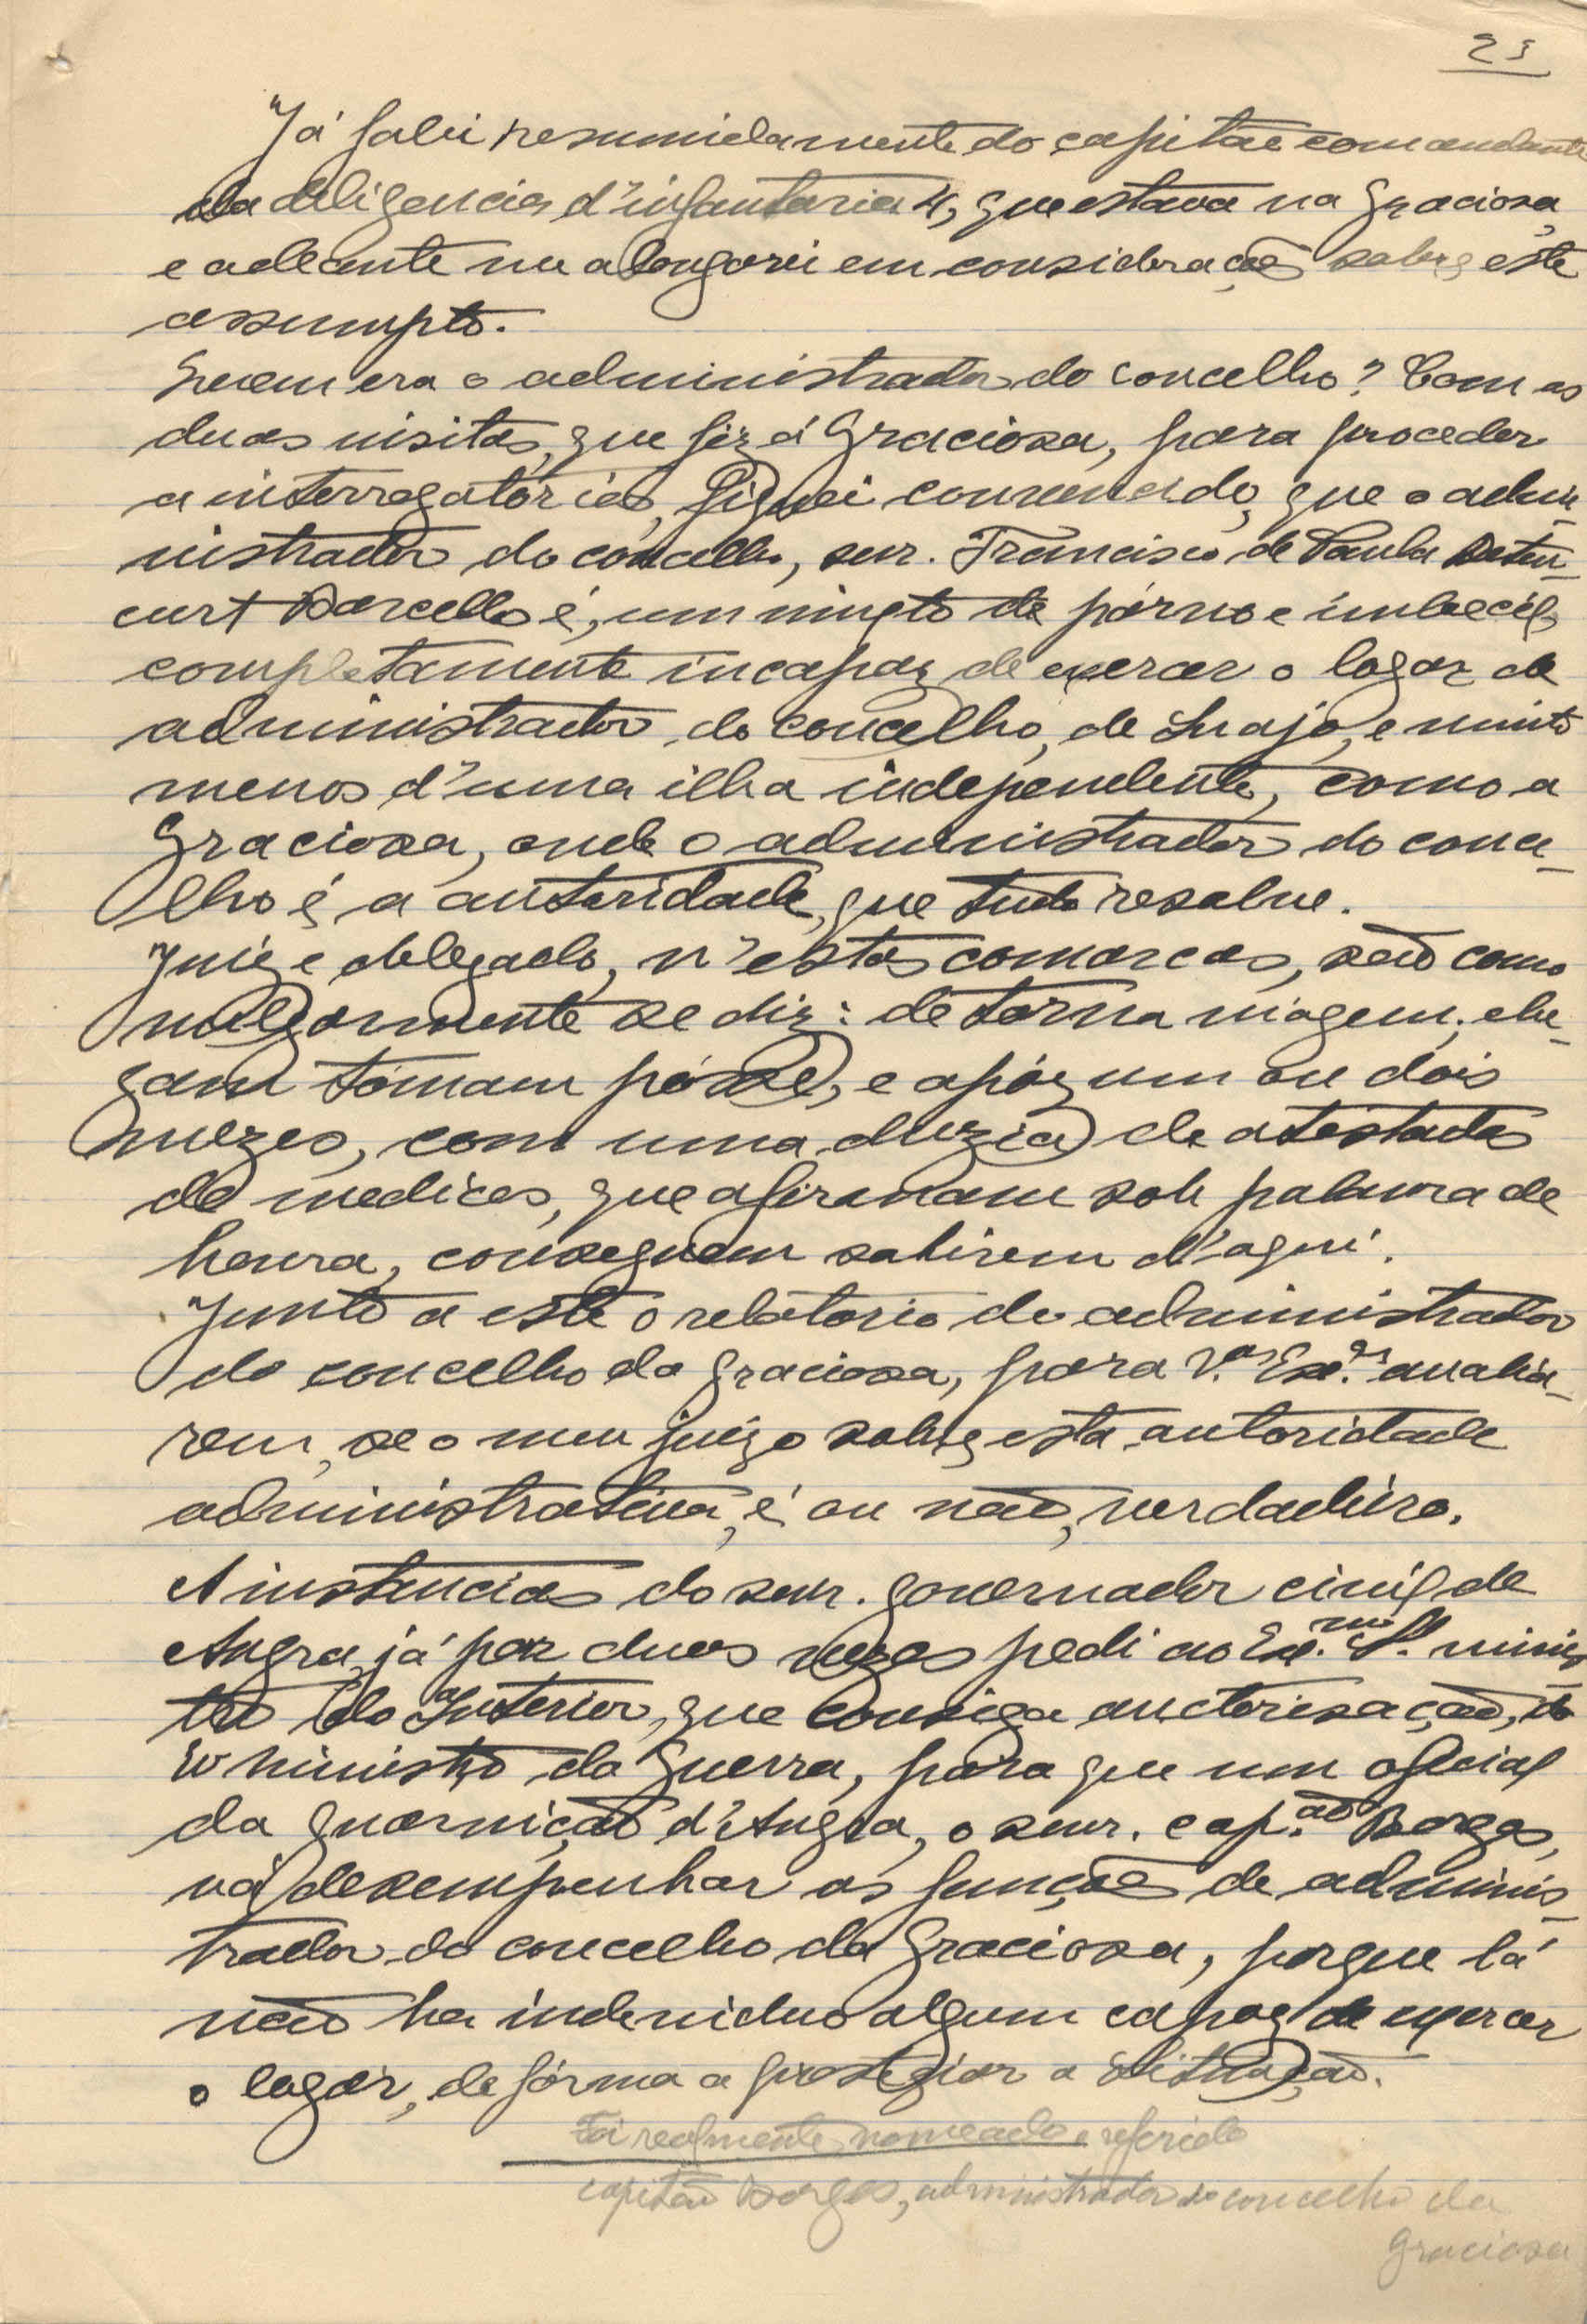 23
"Já falei resumidamente do capitão comandante
da deligencia d'infantaria 4, que estava na Graciosa,
e adeante me alongarei em considerações sobre este
assumpto.
Quem era o administrador do concelho? Com as
duas visitas, que fiz á Graciosa, para proceder
a interrogatorios, fiquei convencido, que o admi-
nistrador do concelho, snr. Francisco de Paula Beten-
curt Barcellos é, um mixto de párvo e imbecil,
completamente incapaz de exercer o logar de
administrador do concelho, de Soajo, e muito
menos d'uma ilha independente, como a
Graciosa, onde o administrador do conce-
lho é a autoridade, que tudo resolve.
Juiz e delegado, n'estas comarcas, são como
vulgarmente se diz: de torna viagem; che-
gam tómam pósse, e apóz um ou dois
mezes, com uma duzia de atestados
de medicos, que afirmam sob palavra de
honra, conseguem sahirem d'aqui.
Junto a este o relatorio do administrador
do concelho da Graciosa, para V.as Ex.as avalia-
rem, se o meu juizo sobre esta autoridade
administrativa, é ou não, verdadeiro.
A instancias do snr. governador civil de
Angra, já por duas vezes pedi ao Ex.mo Sr. minis-
tro do Interior, que consiga auctorisação, do
ministro da Guerra, para que um oficial
da guarnição d'Angra, o snr. cap.ão Borges,
vá desempenhar as funções de adminis-
trador do concelho da Graciosa, porque lá
não ha individuo algum capaz de exercer
o logar, de fórma a prestigiar a situação.
Foi realmente nomeado o referido
capitão Borges, administrador do concelho da
Graciosa